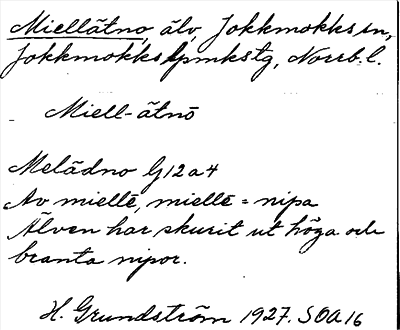 Miellätno, älv, Jokkmokks sn,
Jokkmokks lpmkstg, Norrb. l.
Miell-ätnō
Melädno G12a4
Av miellē, miellē = nipa
Älven har skurit ut höga och
branta nipor.
H. Grundström 1927. SOA 16